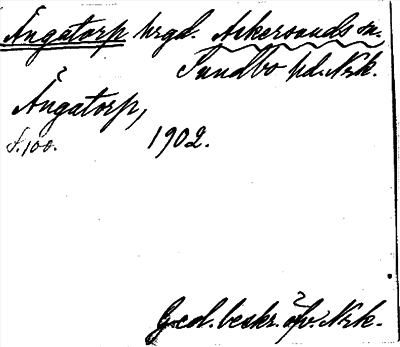 Ängatorp hrgd. Askersunds sn.
Sundbo hd. Nrk.
Ängatorp,
s. 100. 1902.
Geol. beskr. öfv. Nrk.